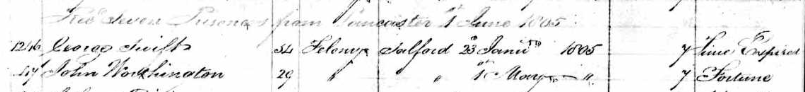 Seven Prisoners from Lancaster 1 June 1805
1246 George Swift 34 Felony Salford 23 Janu 1805 7 Time Expired
47 John Worthington 29 " " 1 May " 7 Fortune